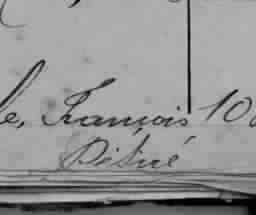 le, François 10
Désiré